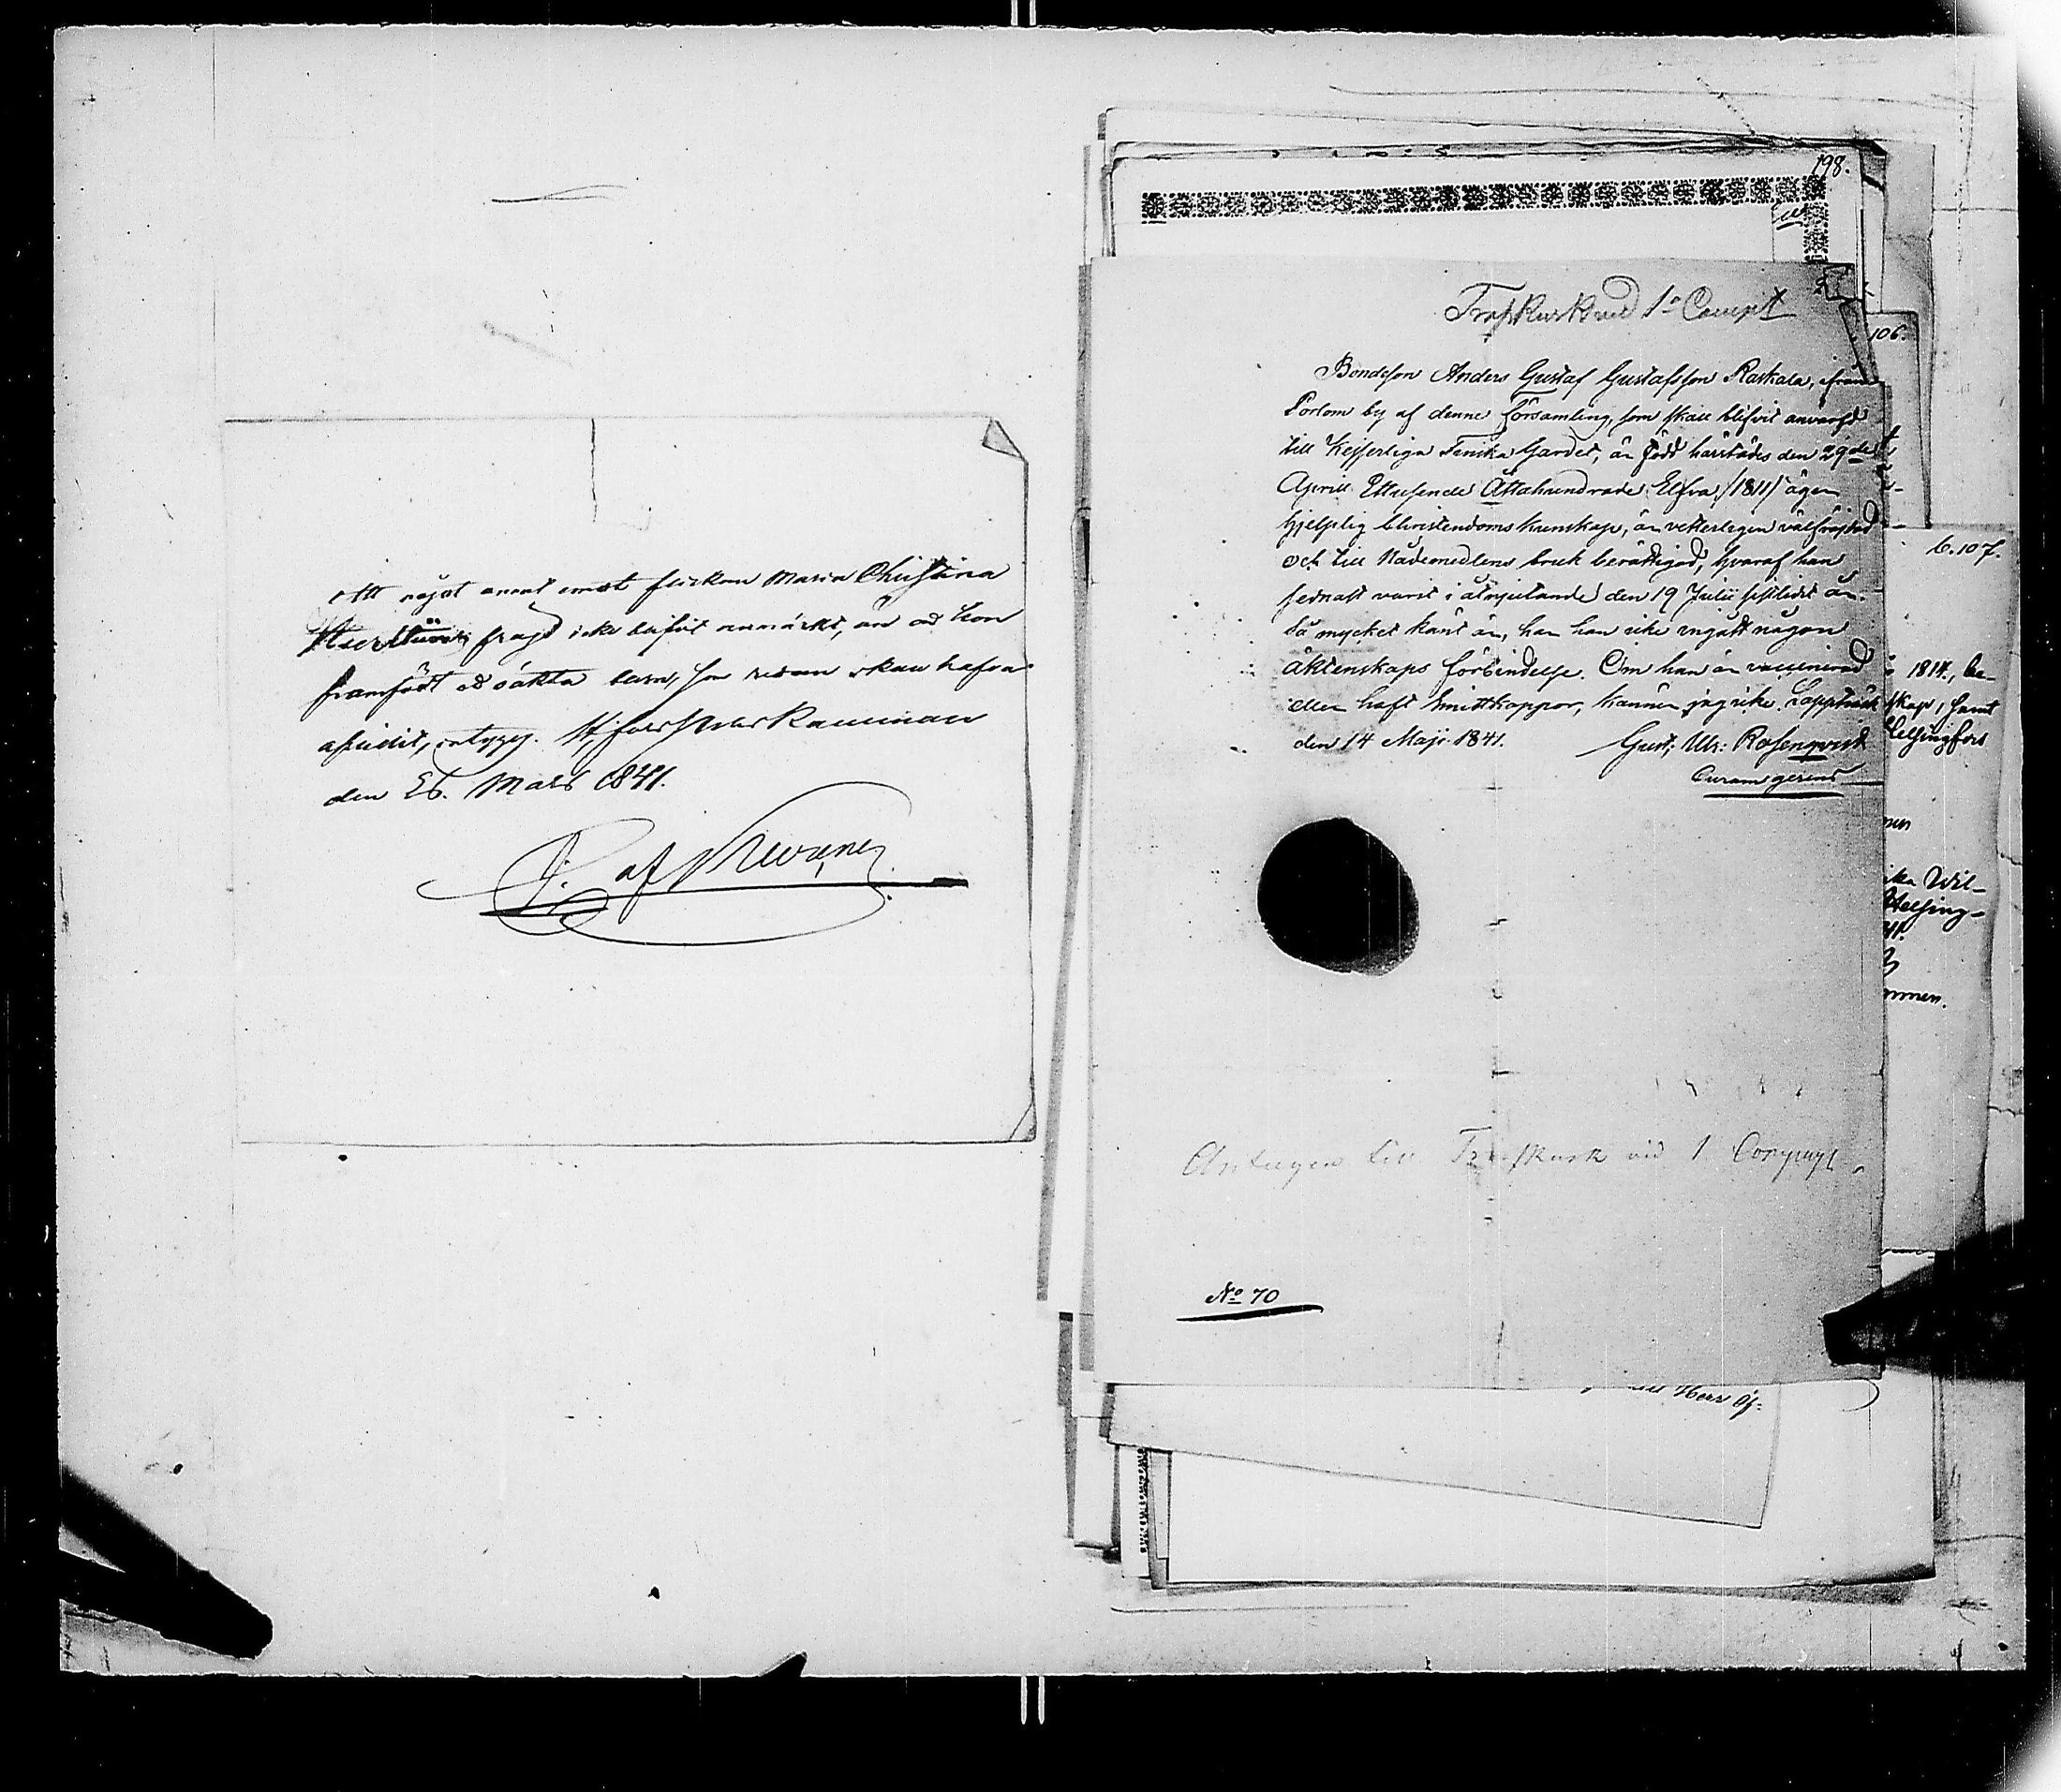 Att något annat emot flickan Maria Christina
fragd icke blifvit anmärkt, än att hon
framfödt ett oäkta barn, som redan skall hafva
aflidit, intygar.
den 26. Mars 1841.
af
198.
Trosskusk vid 1º Comp:t
106.
Bondeson Anders Gustaf Gustafsson Raskala, ifrån
Porlom by af denne församling, som skall blifvit anvärfd
till Kejserliga Finska Gardet, är född härstädes den 29de
Aprill Ettusende Åttahundrade Elfva /1811/ äger
hjelplig Christendoms kunskap, är vetterligen välfräjdad
och till Nådemedlens bruk berättigad, hvaraf han
sednast varit i åtnjutande den 19 Julii sistlidit år.
Så mycket känt är, har han icke ingått någon
äktenskaps förbindelse. Om han är vaccinerad
eller haft Smittkoppor, känner jag icke. Lappträsk
den 14 Maji 1841.
Gust: Ulr: Rosenqvist
Curam gerens
Antagen till Trosskusk vid 1 Compagt
No 70
6.107.
1814, be-
skap, samt
Helsingfors
Wil-
Helsing-
41.
mmen.
Herr Öf-